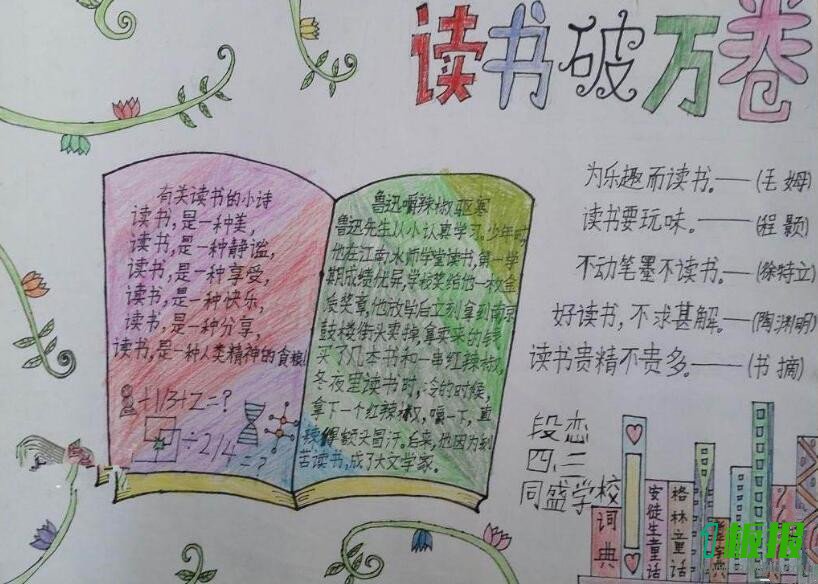 读书破万卷
有关读书的小诗
读书,是一种美,
读书,是一种静谧,
读书,是一种享受,
读书,是一种快乐,
读书,是一种分享,
读书,是一种人类精神的食粮!
+1/3+Z=?
÷2/4
=?
鲁迅嚼辣椒驱寒
鲁迅先生从小认真学习。少年时,
他在江南水师学堂读书,第一学
期成绩优异,学校奖给他一枚金
质奖章。他放学后立刻拿到南京
鼓楼街头卖掉,拿卖来的钱
买了几本书和一串红辣椒。
冬夜里读书时,冷的时候,
拿下一个红辣椒,嚼一下,直
辣得额头冒汗。后来,他因为刻
苦读书,成了大文学家。
为乐趣而读书。——(毛姆)
读书要玩味。——(程颢)
不动笔墨不读书。——(徐特立)
好读书,不求甚解。——(陶渊明)
读书贵精不贵多。——(书摘)
段恋
四、二
同盛学校
词典
安徒生童话
格林童话
字典
1板报